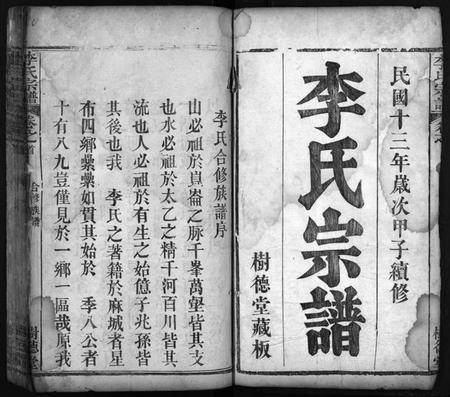 民國十三年歲次甲子續修
李氏宗譜
樹德堂藏板
李氏合修族譜序
山必祖於崑崙之脉千峯萬壑皆其支
也水必祖於太乙之精千河百川皆其
流也人必祖於有生之始億子兆孫皆
其後也我 李氏之著籍於麻城者星
布四鄉纍纍如貫其始於 季八公者
十有八九豈僅見於一鄉一區哉原我
李氏宗譜
合修族譜
樹德堂
李氏宗譜
樹德堂